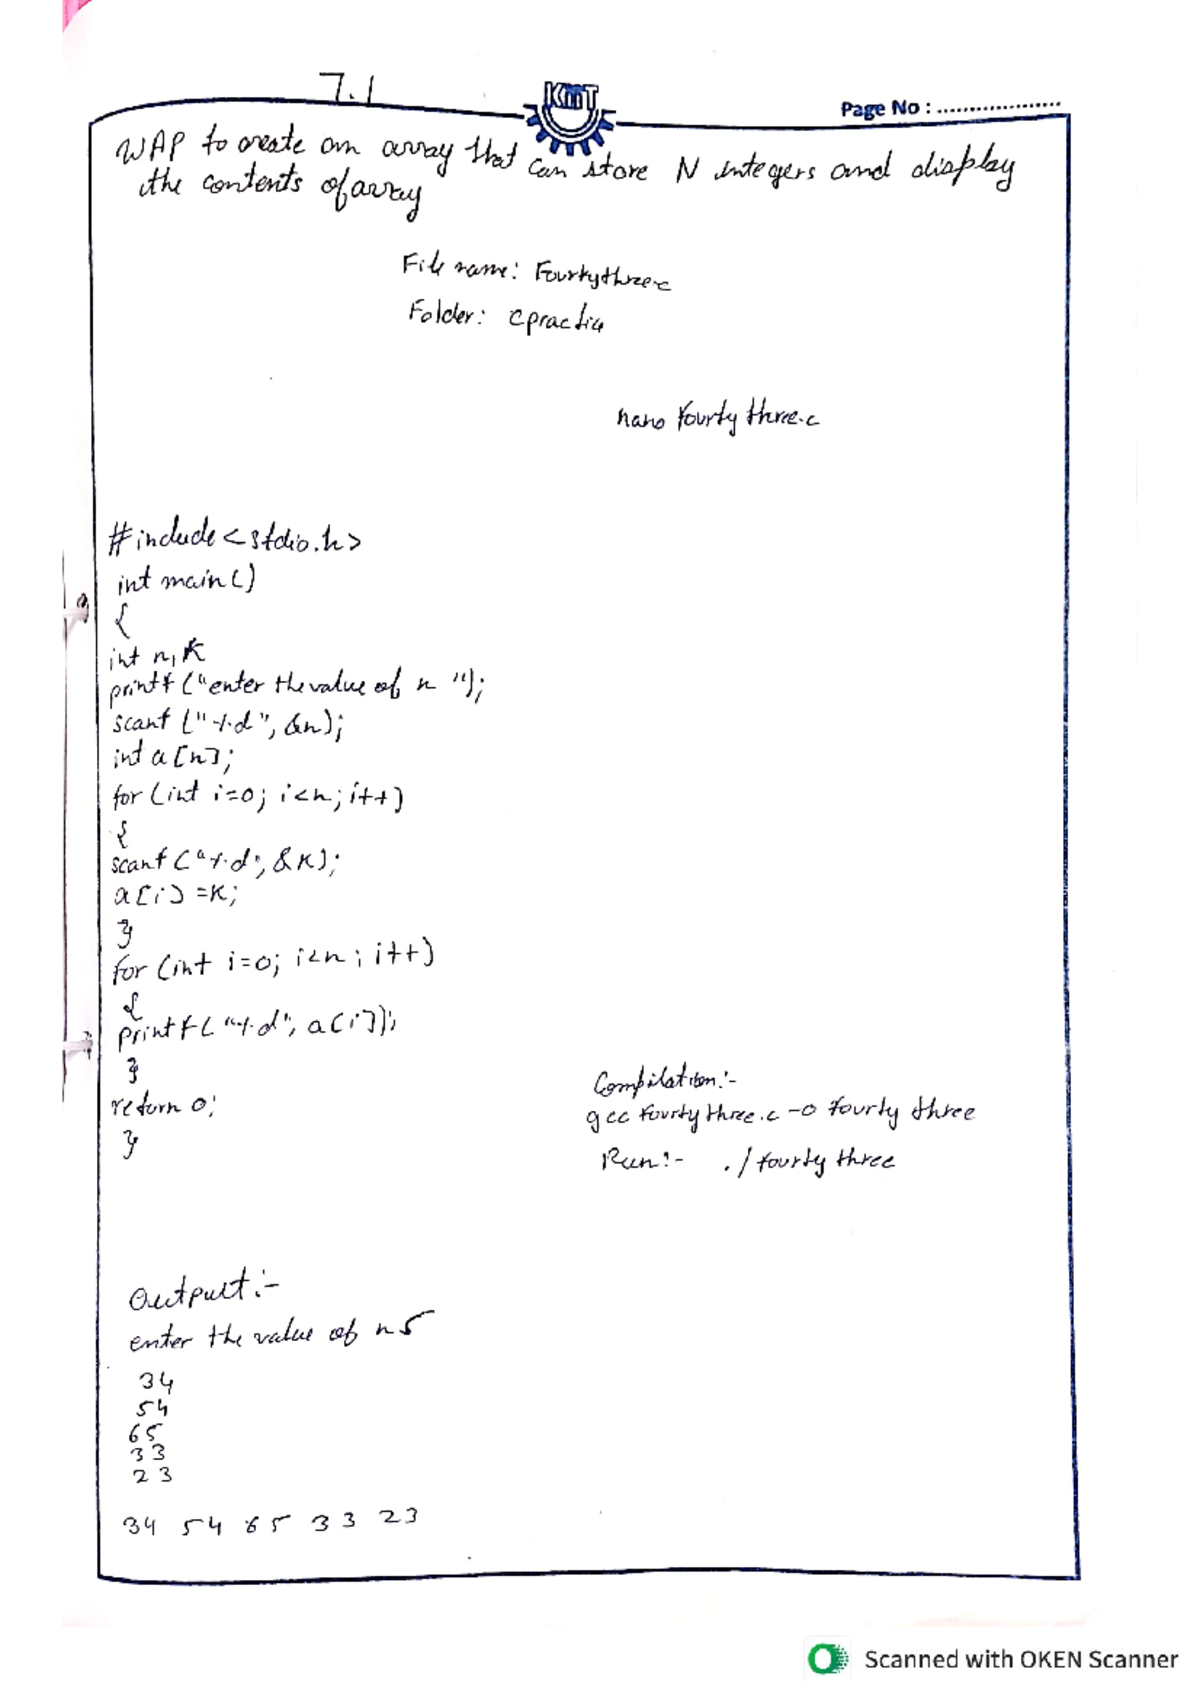 7.1
KMIT
Page No : ....................
WAP to create an array that can store N integers and display
the contents of array
File name: Fourtythree.c
Folder: cpractice
nano fourty three.c
#include<stdio.h>
int main()
{
int n, k
printf ("enter the value of n ");
scanf ("%d", &n);
int a[n];
for (int i=0; i<n; i++)
{
scanf ("%d", &k);
a[i] =k;
}
for (int i=0; i<n; i++)
{
printf( "%d", a[i]);
}
return 0;
}
Compilation:-
gcc fourty three.c -o fourty three
Run:- ./fourty three
Output:-
enter the value of n 5
34
54
65
33
23
34 54 65 33 23
Scanned with OKEN Scanner